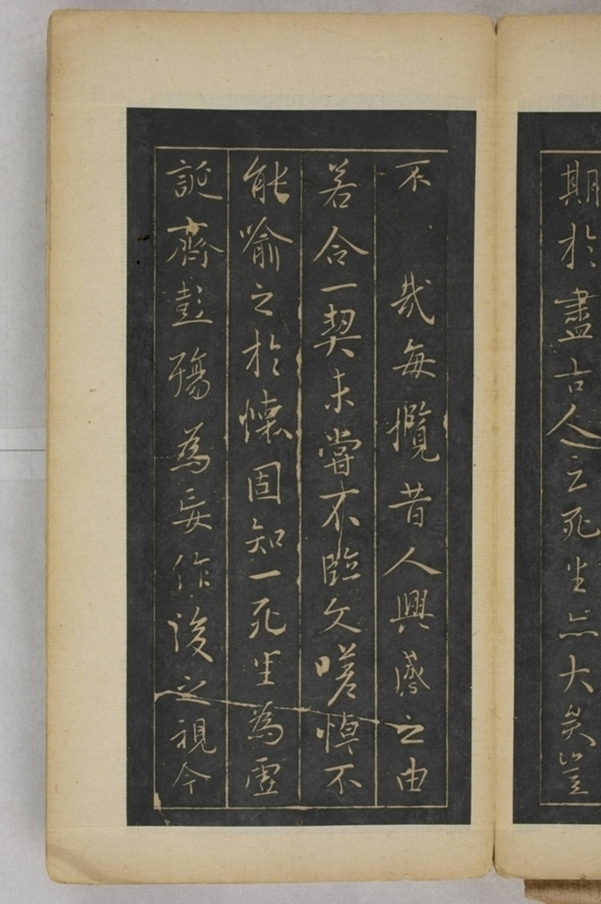 期於盡古人云死生亦大矣豈
不哉每攬昔人興感之由
若合一契未嘗不臨文嗟悼不
能喻之於懷固知一死生為虛
誕齊彭殤為妄作後之視今